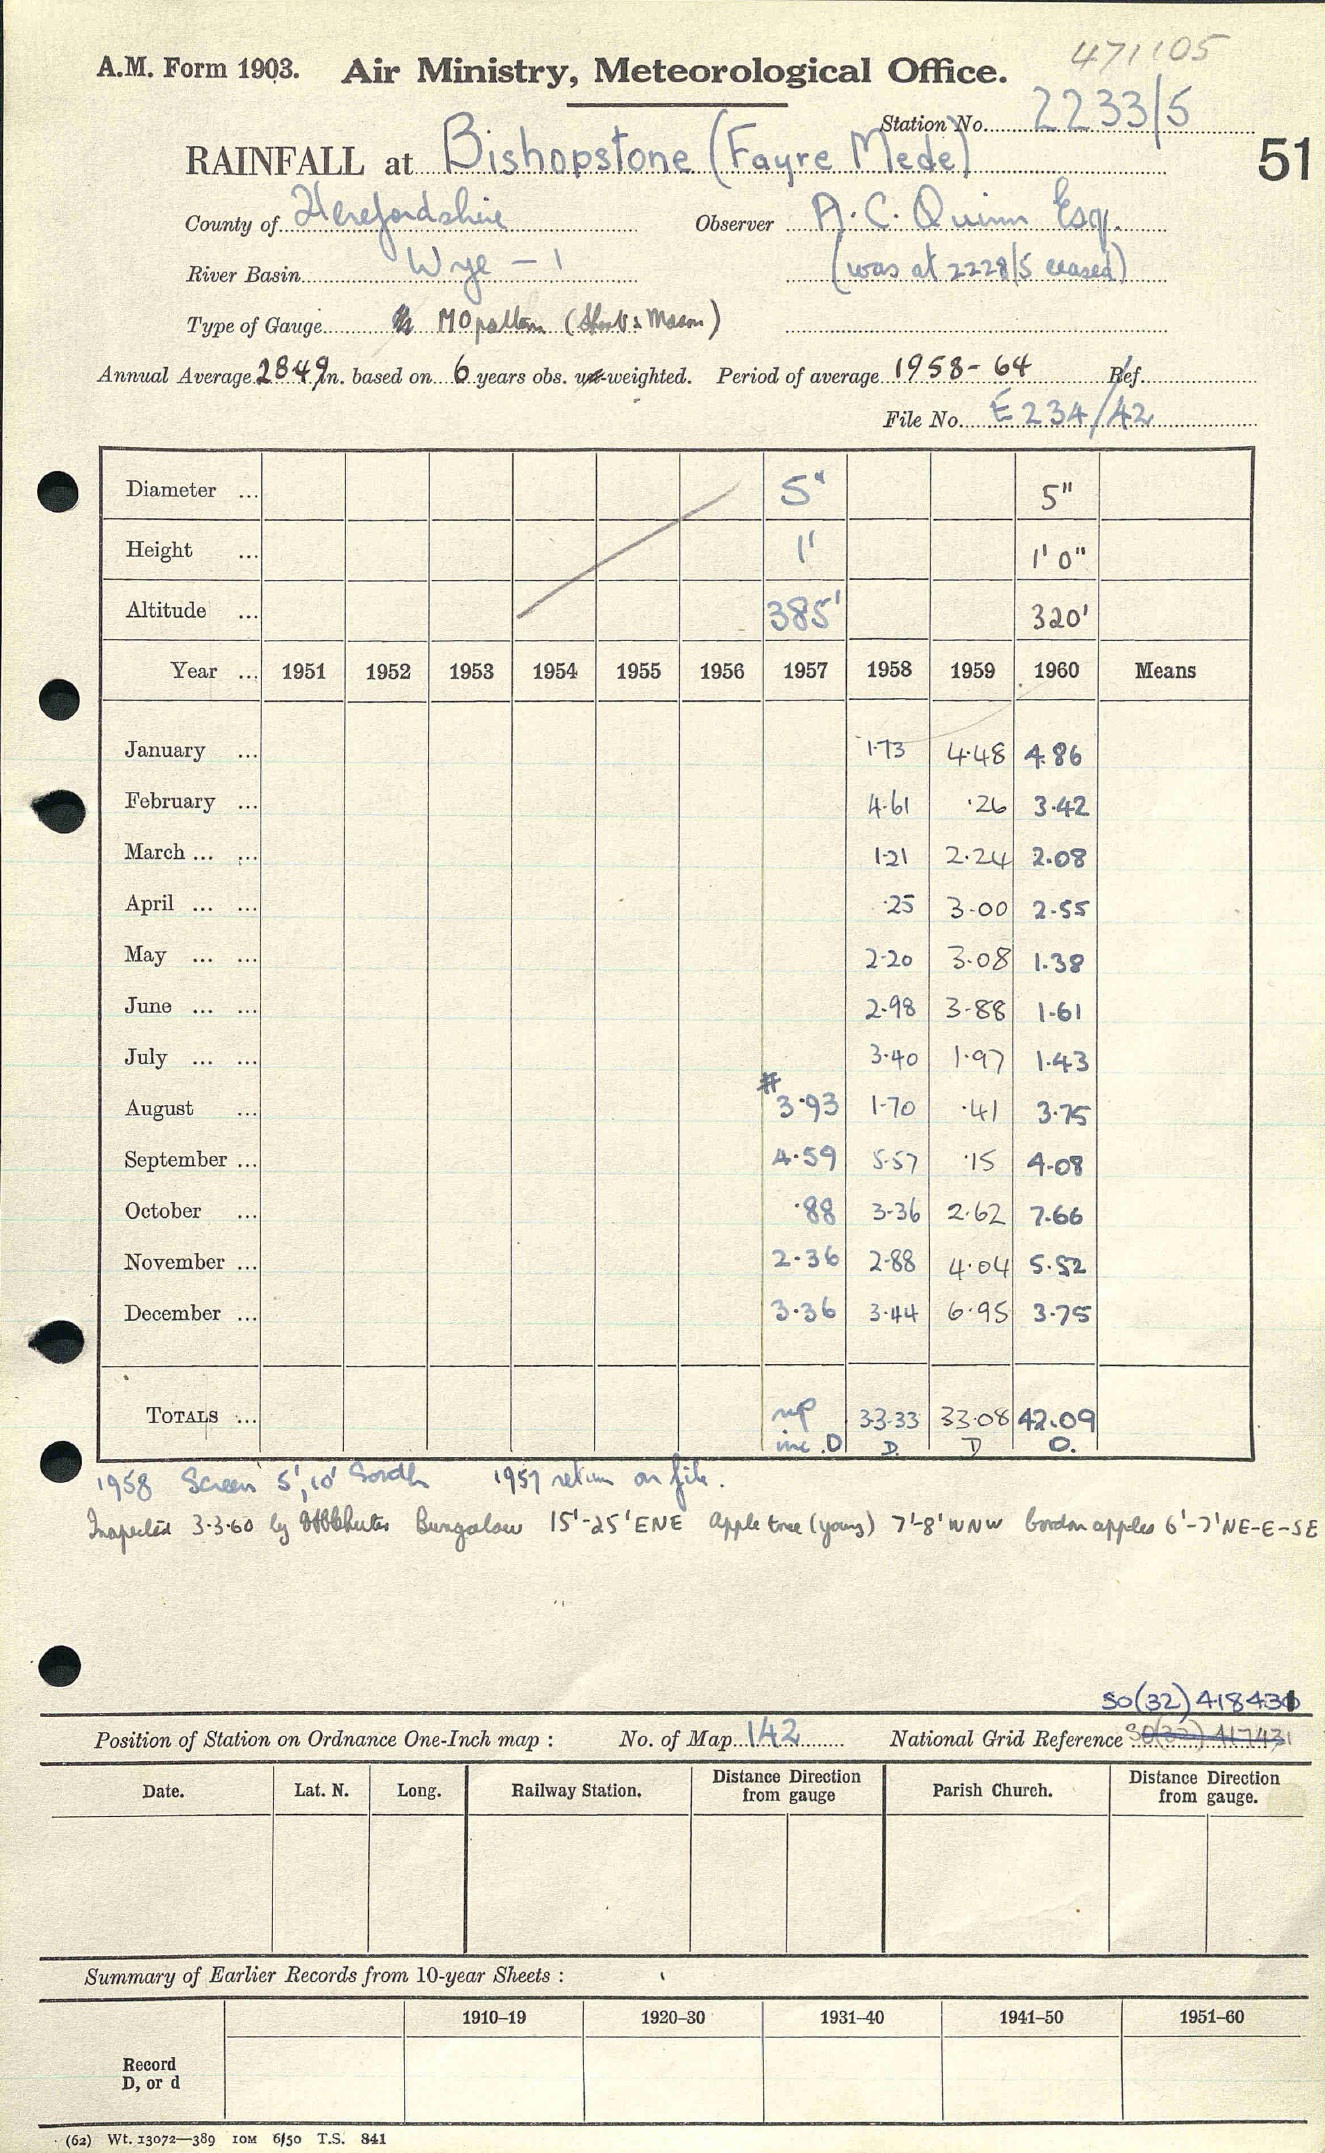 471105
A.M. Form 1903. Air Ministry, Meteorological Office.
Station No. 2233/5
RAINFALL at Bishopstone (Fayre Mede)
51
County of Herefordshire Observer A. C. Quinn Esq.
River Basin Wye - 1 (was at 2228/5 ceased)
Type of Gauge MO pattern (Short & Mason)
Annual Average 28.49 in. based on 6 years obs. weighted. Period of average 1958-64 Ref.
File No. E 234/42
Diameter ... 5" 5"
Height ... 1' 1' 0"
Altitude ... 385' 320'
Year ... 1951 1952 1953 1954 1955 1956 1957 1958 1959 1960 Means
January ... 1.73 4.48 4.86
February ... 4.61 .26 3.42
March ... ... 1.21 2.24 2.08
April ... ... .25 3.00 2.55
May ... ... 2.20 3.08 1.38
June ... ... 2.98 3.88 1.61
July ... ... 3.40 1.97 1.43
August ... # 3.93 1.70 .41 3.75
September ... 4.59 5.57 .15 4.08
October ... .88 3.36 2.62 7.66
November ... 2.36 2.88 4.04 5.52
December ... 3.36 3.44 6.95 3.75
TOTALS ... 33.33 33.08 42.09
inc. D D. D D.
1958 Screen 5', 10' South 1957 return on file.
Inspected 3.3.60 by Bungalow 15'-25' ENE Apple tree (young) 7'-8' WNW Cordon apples 6'-7' NE-E-SE
SO(32) 418431
Position of Station on Ordnance One-Inch map : No. of Map 142 National Grid Reference SO(32) 417431
Date. Lat. N. Long. Railway Station. Distance Direction from gauge Parish Church. Distance Direction from gauge.
Summary of Earlier Records from 10-year Sheets :
1910-19 1920-30 1931-40 1941-50 1951-60
Record
D, or d
(62) Wt. 13072—389 10M 6/50 T.S. 841